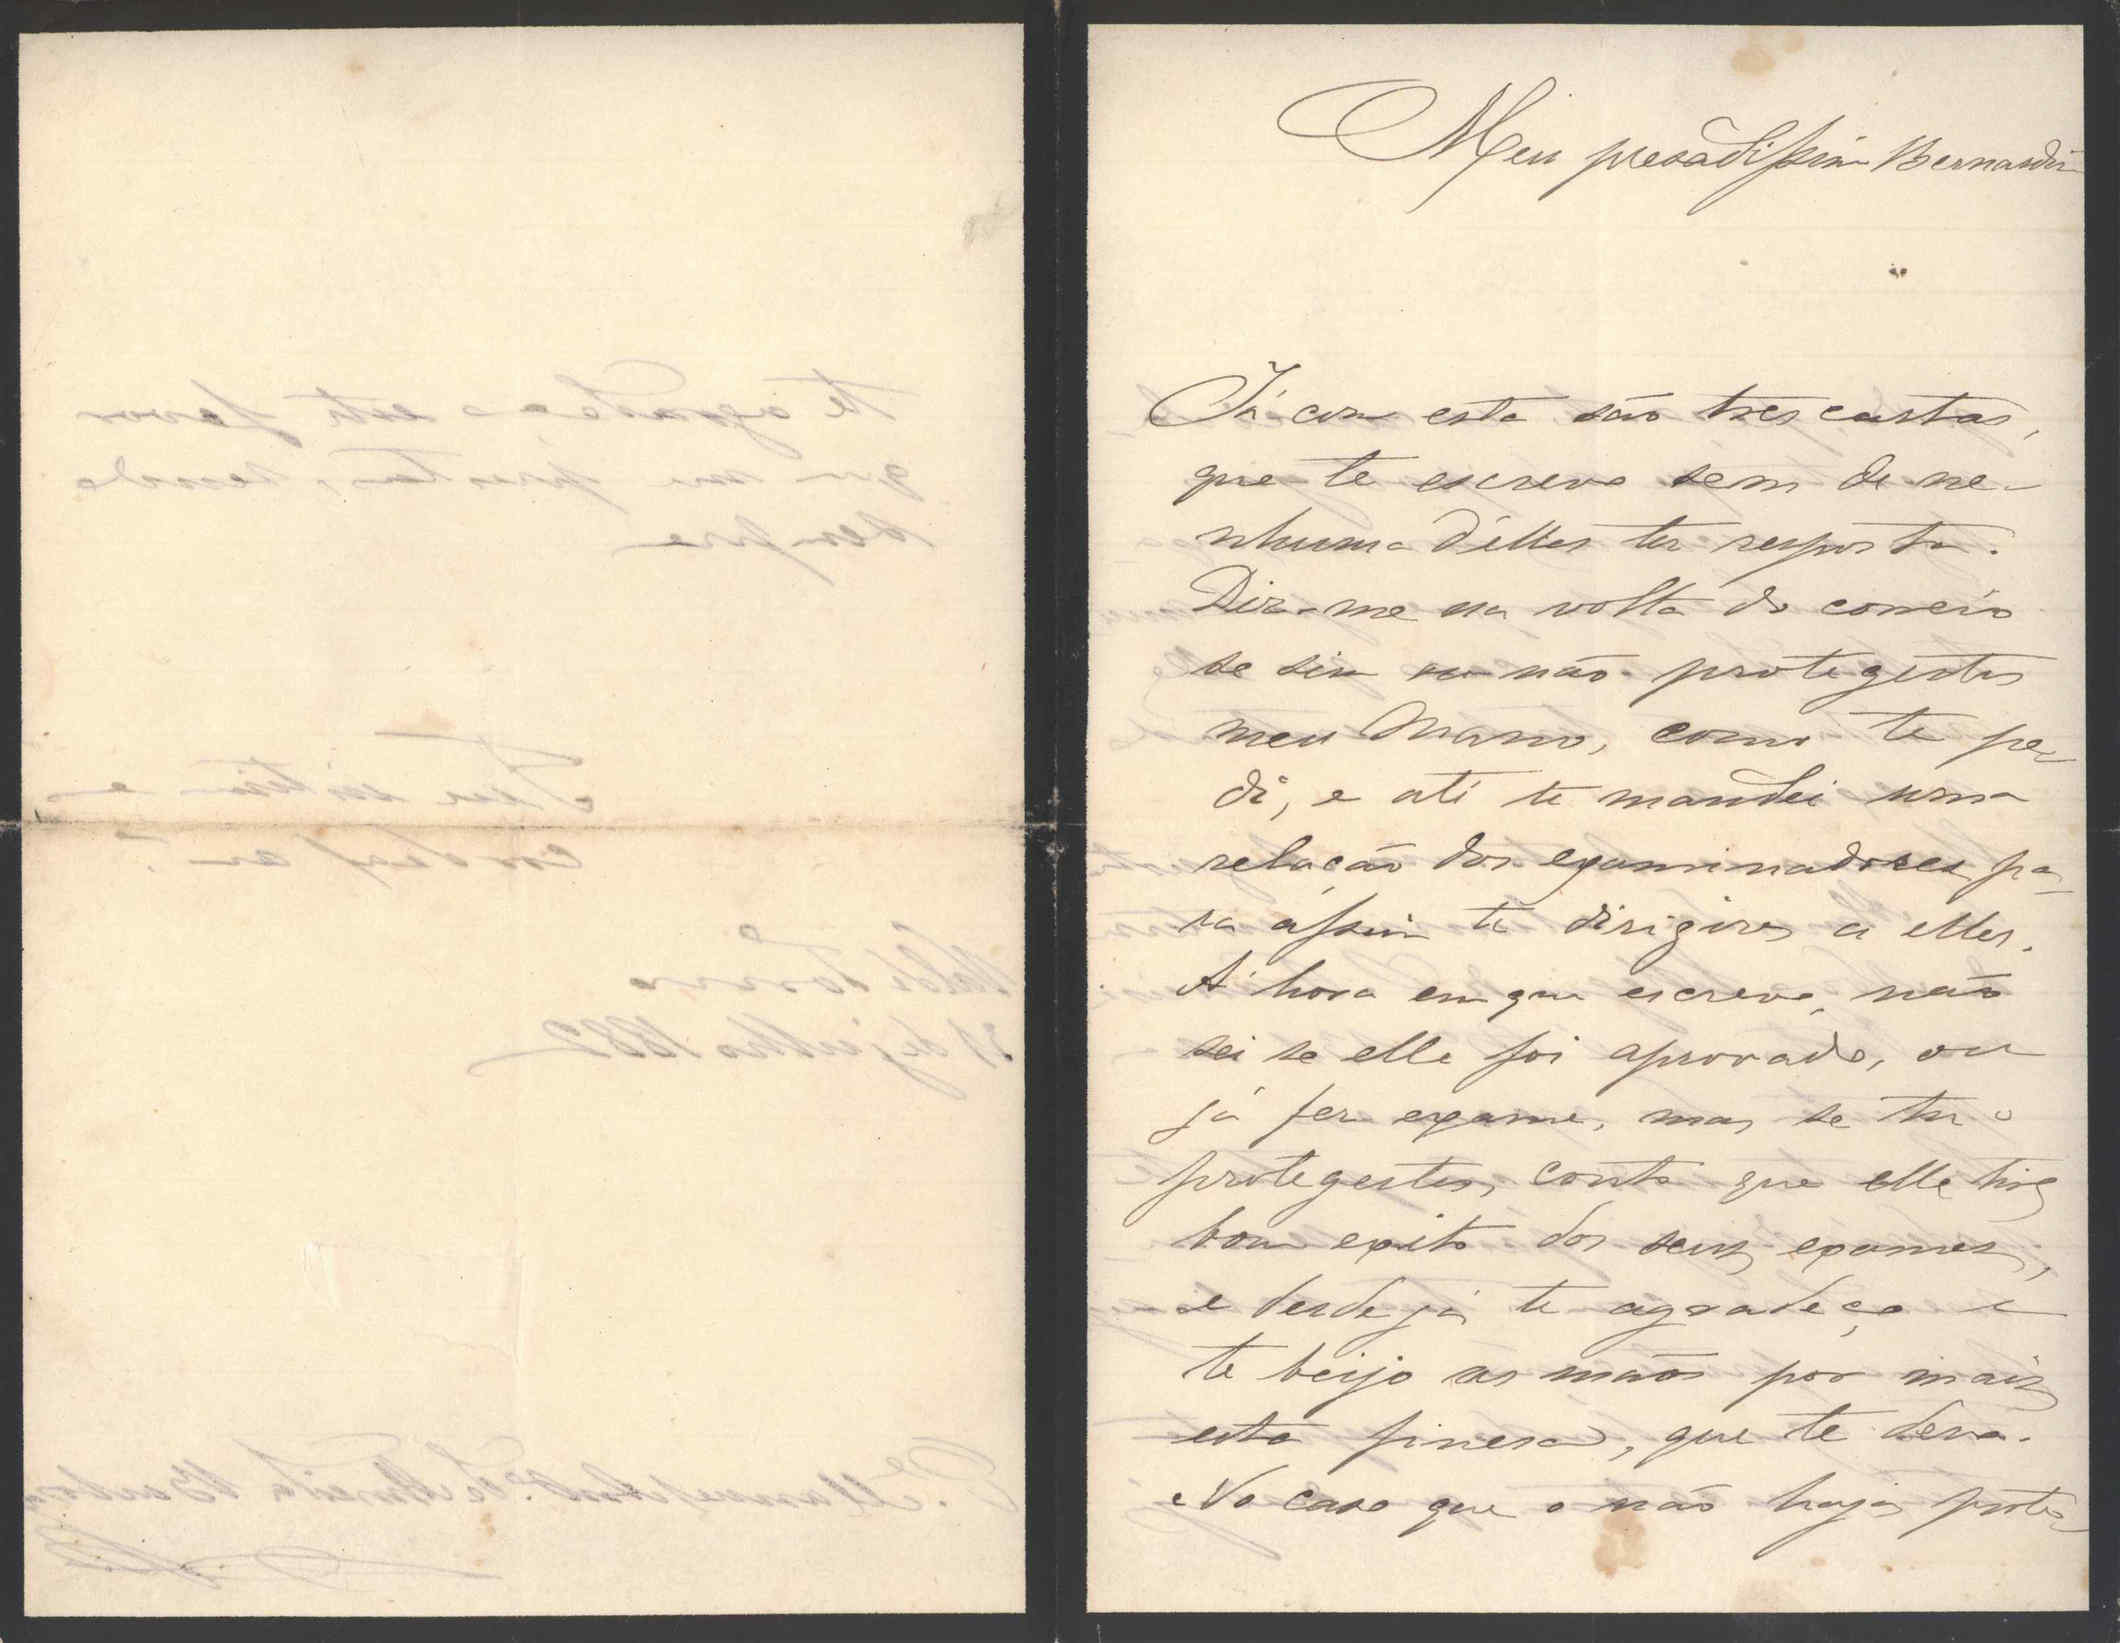 Meu presadissimo Bernardino
Já com esta são tres cartas,
que te escrevo sem de ne-
nhuma d'ellas ter resposta.
Diz-me na volta do correio
se sim ou não protegestes
meu Mano, como te pe-
di, e até te mandei uma
relação dos examinadores pa-
ra assim te dirigires a elles.
A' hora em que escrevo, não
sei se elle foi aprovado, ou
já fez exame, mas se tu o
protegestes, conto que elle tire
bom exito dos seus exames,
e desde já te agradeço e
te beijo as mãos por mais
esta finesa, que te devo.
No caso que o não hajas prote-
te agradeça este favor
que me prestas, sendo
sempre
Teu
31 de julho 1882
P.e Manuel de Almeida Barbosa